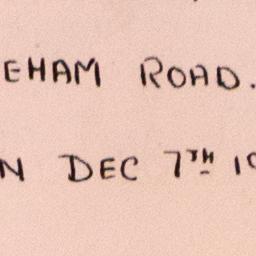 EHAM ROAD.
N DEC 7TH 19